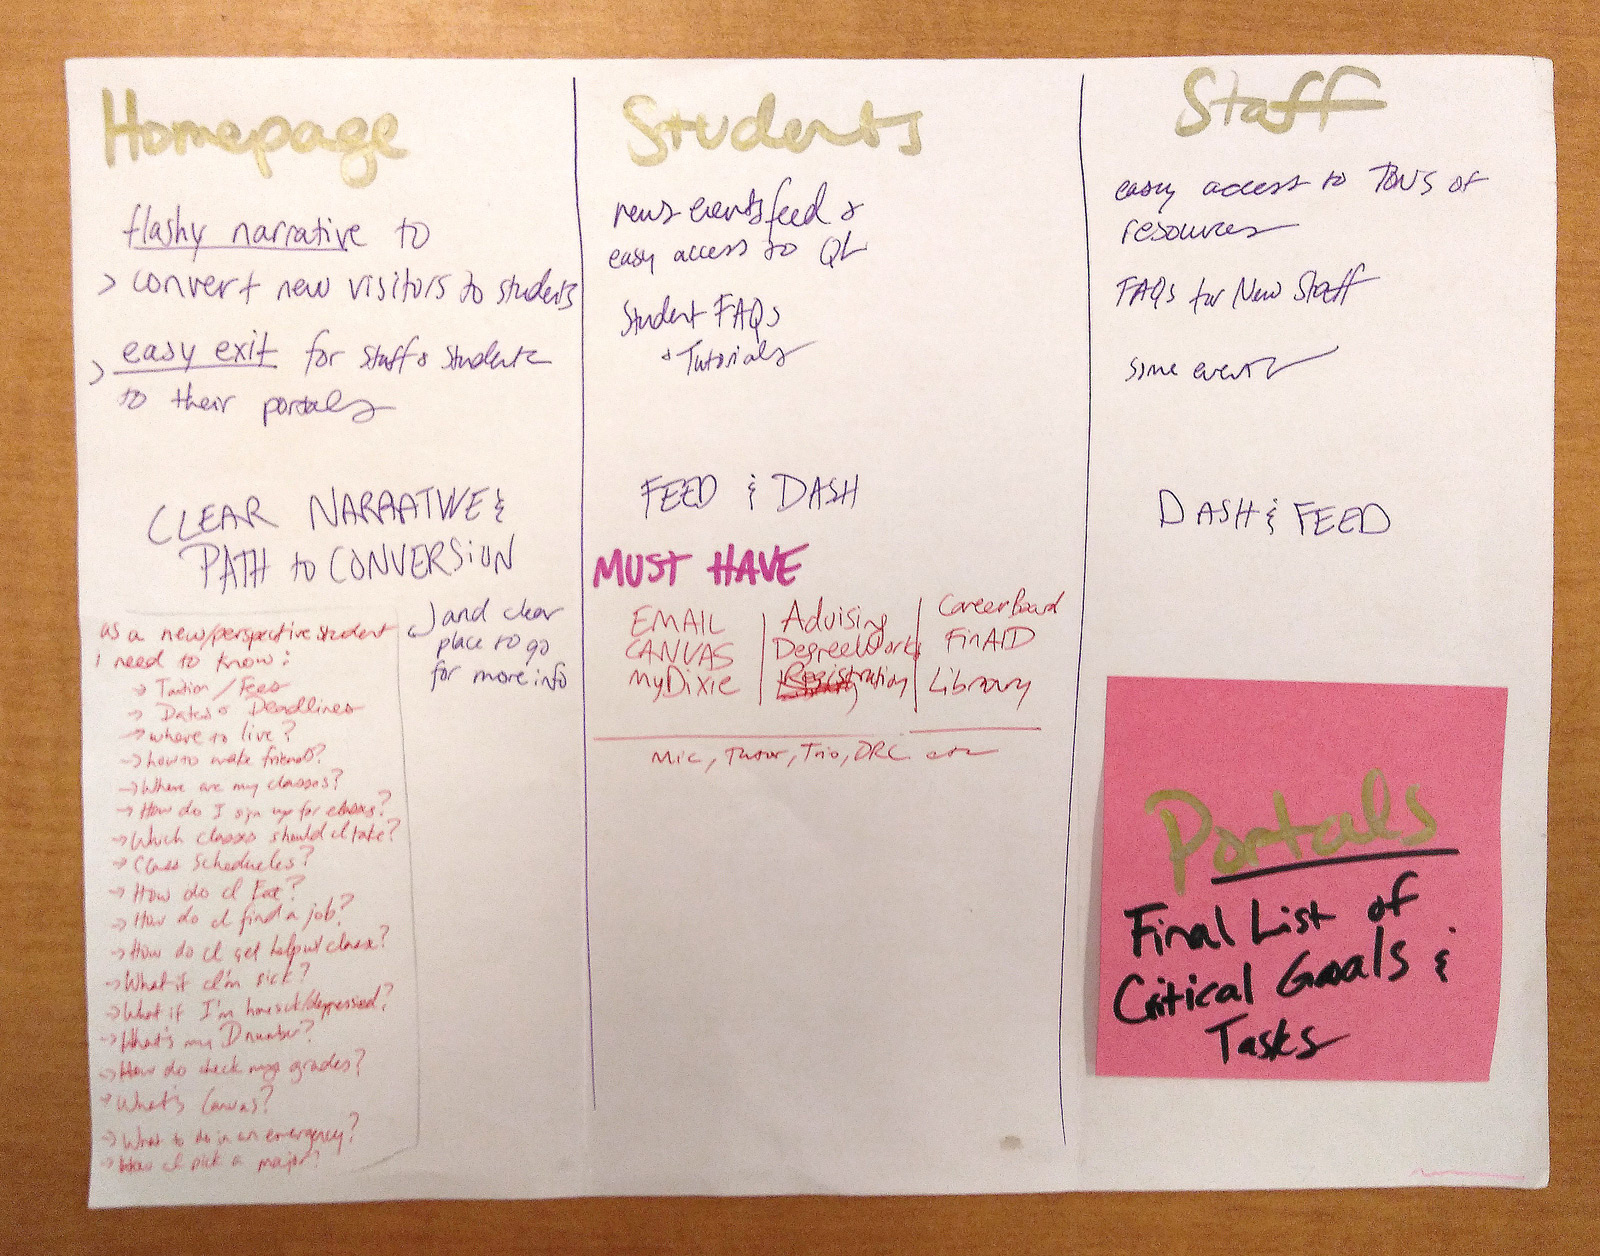 Homepage
flashy narrative to
> convert new visitors to students
> easy exit for staff & students
to their portals
CLEAR NARRATIVE &
PATH to CONVERSION
and clear
place to go
for more info
as a new/perspective student
i need to know:
→ Tuition / Fees
→ Dates & Deadlines
→ where to live?
→ how to make friends?
→ Where are my classes?
→ How do I sign up for classes?
→ Which classes should I take?
→ Class Schedules?
→ How do I Eat?
→ How do I find a job?
→ How do I get help w/ class?
→ What if I'm sick?
→ What if I'm homesick/depressed?
→ What's my D number?
→ How do check my grades?
→ What's Canvas?
→ What to do in an emergency?
→ How I pick a major?
Students
news events feed &
easy access to QL
Student FAQs
& Tutorials
FEED & DASH
MUST HAVE
EMAIL
CANVAS
myDixie
Advising
DegreeWorks
Registration
Career Board
FinAID
Library
Mic, Tutor, Trio, DRC etc
Staff
easy access to TONS of
resources
FAQs for New Staff
some events
DASH & FEED
Portals
Final List of
Critical Goals &
Tasks